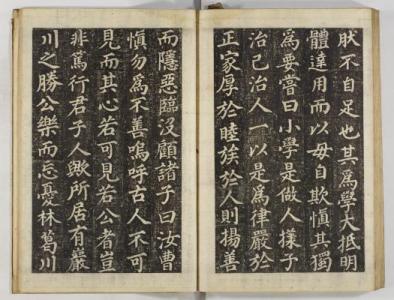 肰不自足也其爲學大抵明
體達用而以毋自欺愼其獨
爲要嘗曰小學是做人樣子
治己治人一以是爲律嚴於
正家厚於睦族於人則揚善
而隱惡臨沒顧諸子曰汝曹
愼勿爲不善嗚呼古人不可
見而其心若可見若公者豈
非篤行君子人歟所居有巖
川之勝公樂而忘憂林葛川